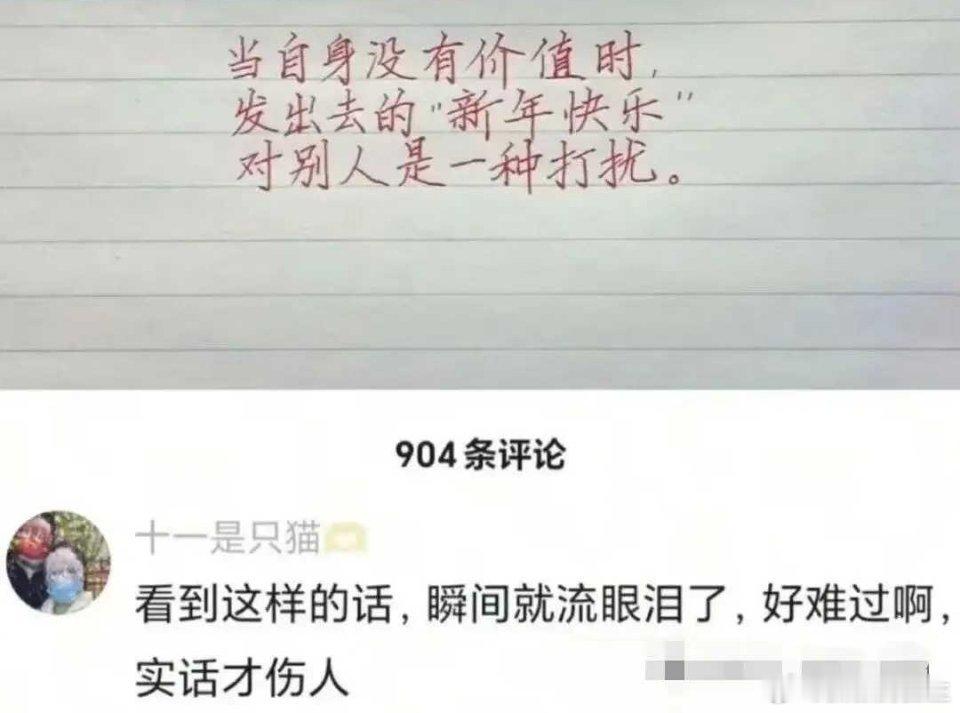 当自身没有价值时，
发出去的“新年快乐”
对别人是一种打扰。
904条评论
十一是只猫
看到这样的话，瞬间就流眼泪了，好难过啊，
实话才伤人